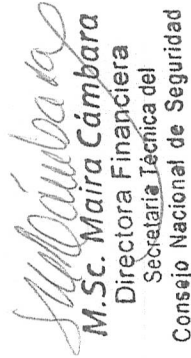 M.Sc. Maira Cámbara
Directora Financiera
Secretaria Técnica del
Consejo Nacional de Seguridad